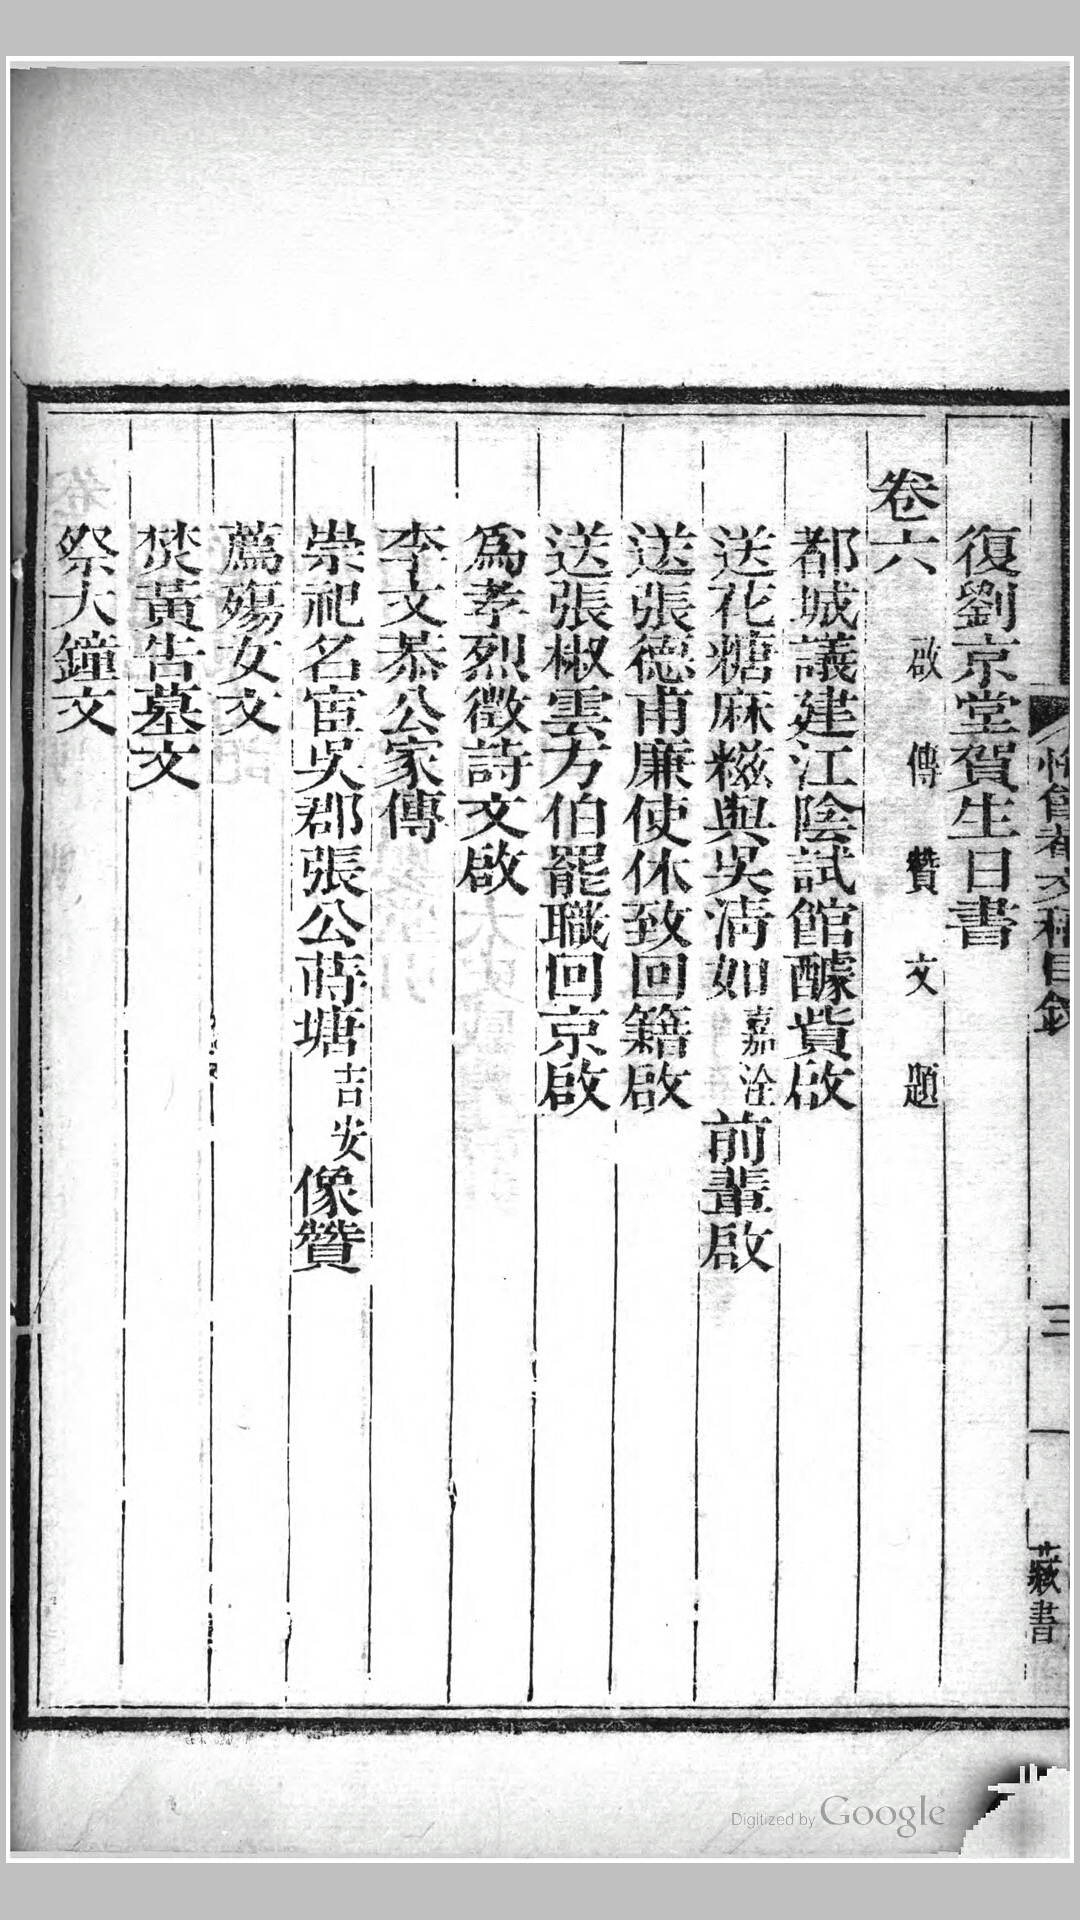 復劉京堂賀生日書
卷六 啟 傳 贊 文 題
都城議建江陰試館醵貲啟
送花糖麻糍與吳淸如嘉淦前輩啟
送張德甫廉使休致回籍啟
送張椒雲方伯罷職回京啟
爲孝烈徵詩文啟
李文恭公家傳
崇祀名宦吳郡張公蒔塘吉安像贊
薦殤女文
焚黃告墓文
祭大鐘文
目錄
三
蔌書
Digitized by Google